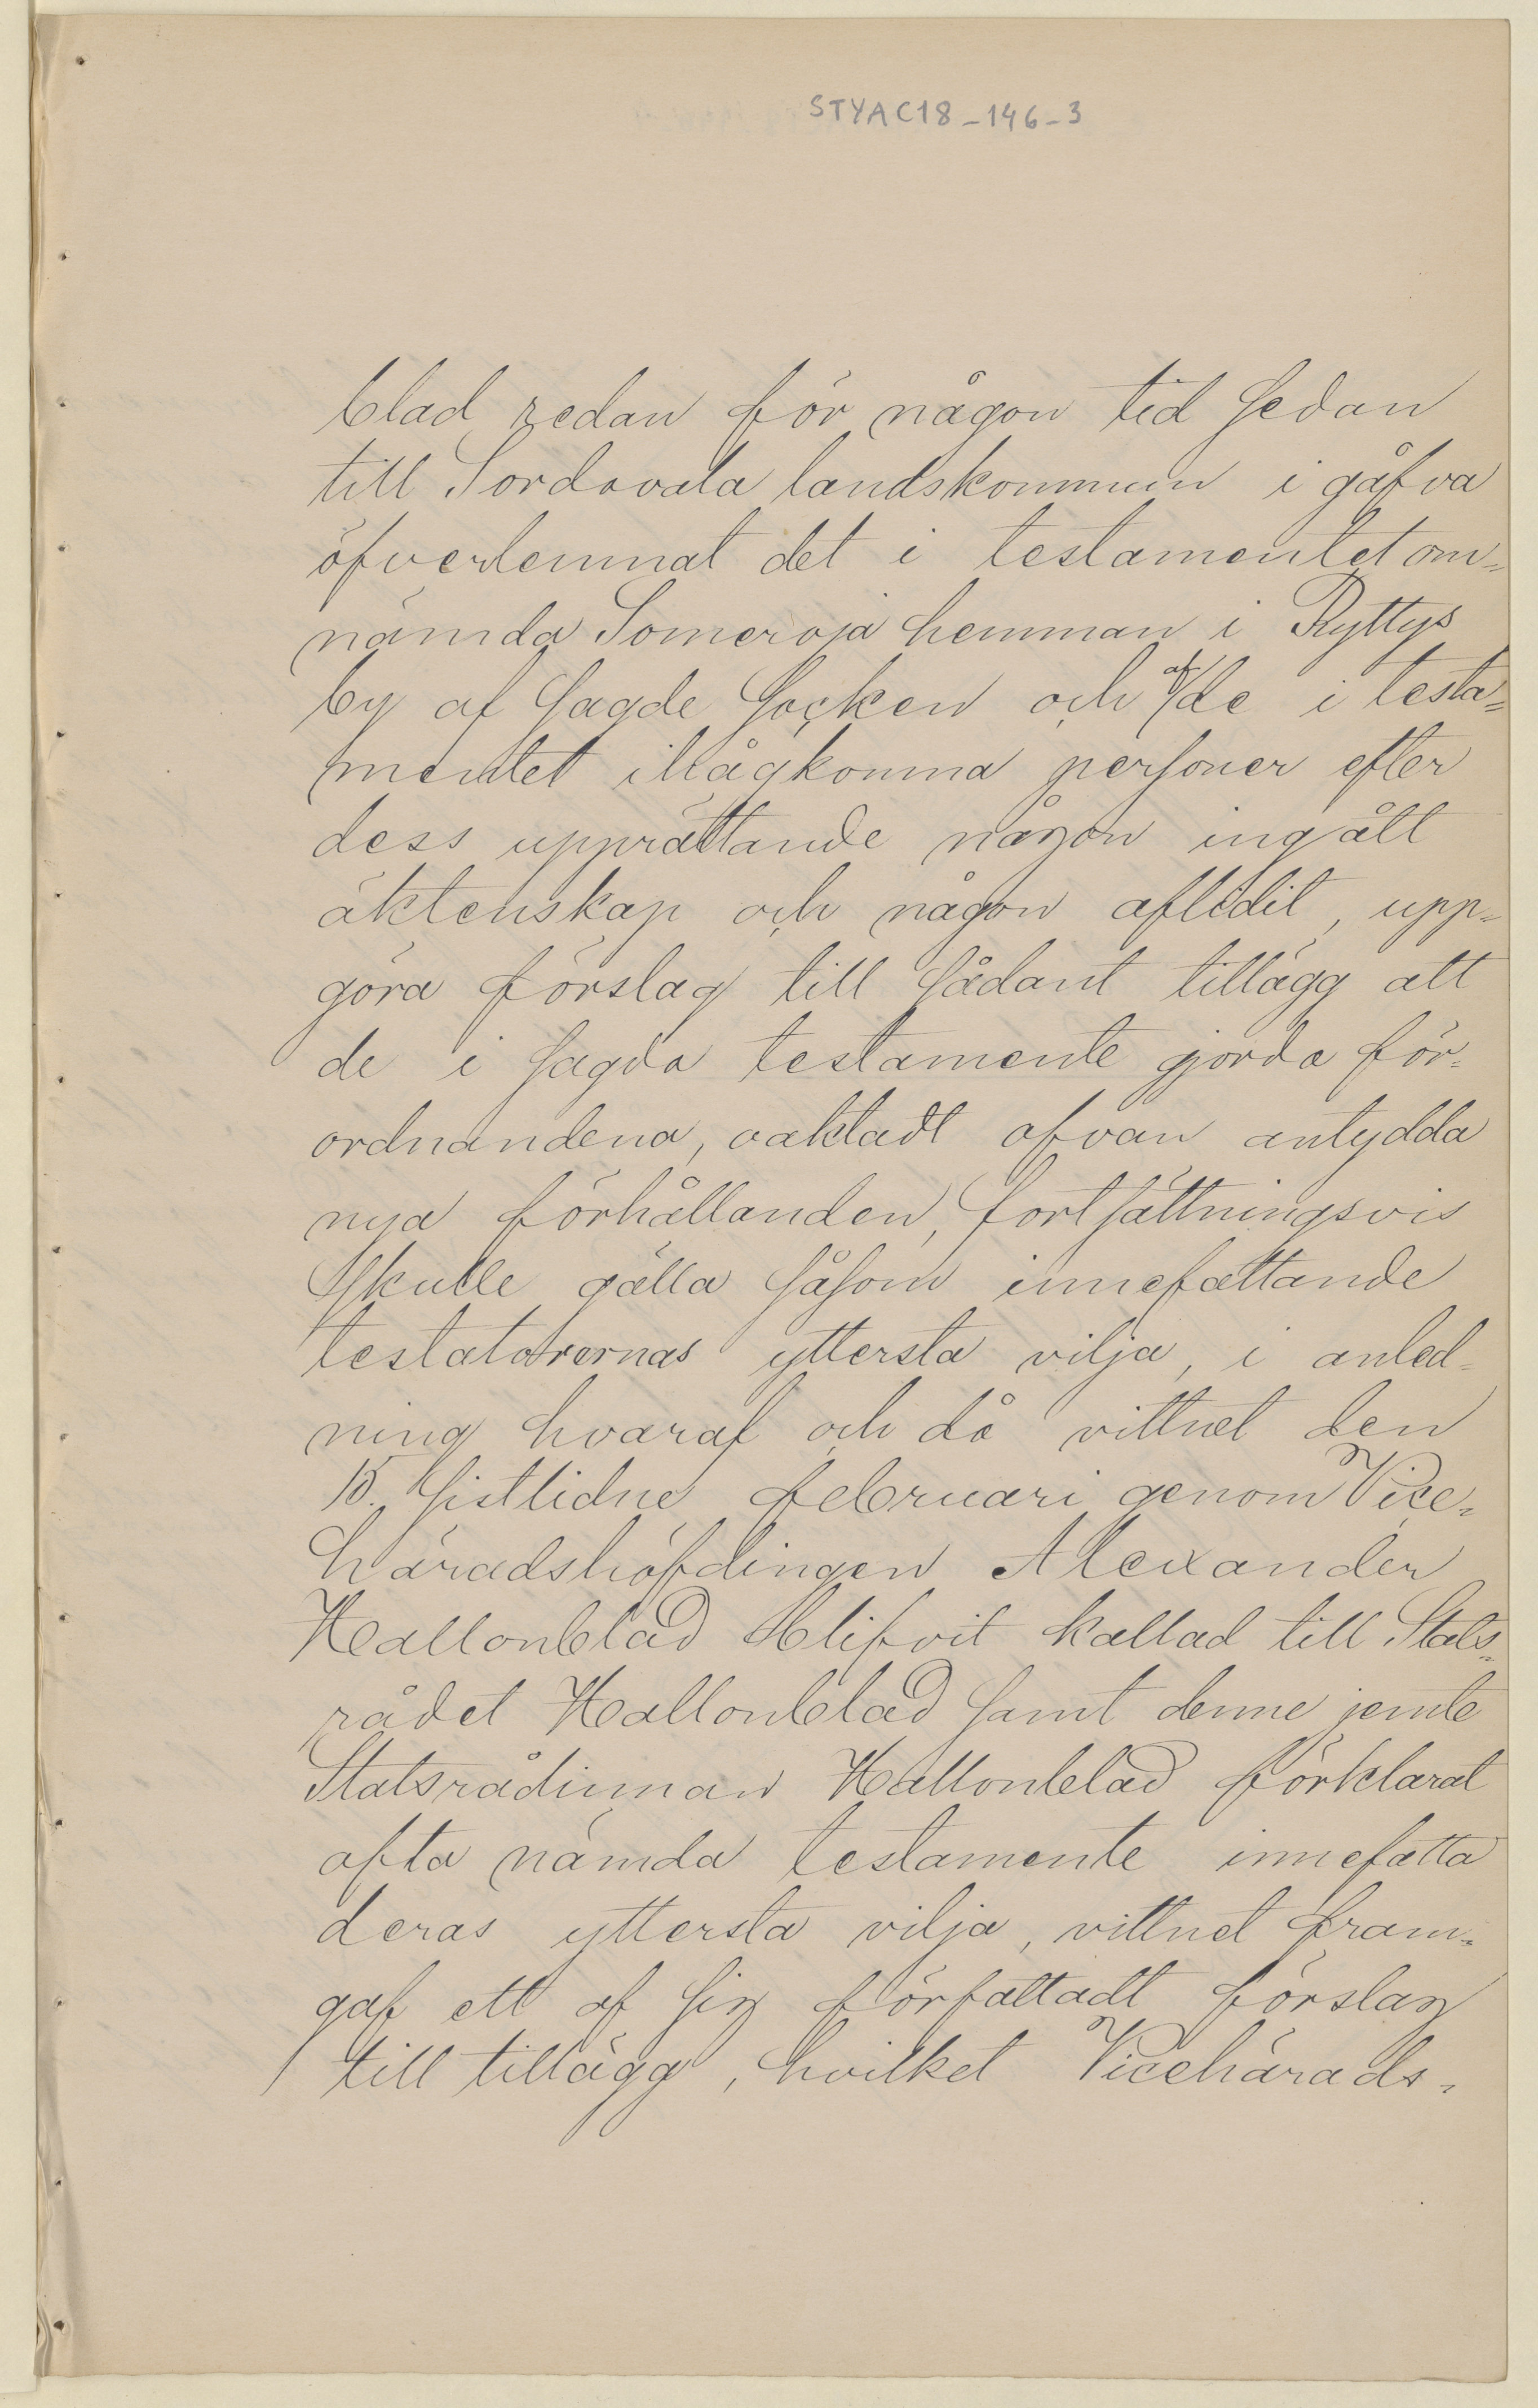 STYAC18-146-3
blad redan för någon tid sedan
till Sordavala landskommun i gåfva
öfverlemnat det i testamentet om-
nämda Someroja hemman i Ryttys
by af sagde socken och af de i testa-
mentet ihågkomna personer efter
dess upprättande någon ingått
äktenskap och någon aflidit, upp-
göra förslag till sådant tillägg att
de i sagda testamente gjorda för-
ordnandena, oaktadt ofvan antydda
nya förhållanden, fortsättningsvis
skulle gälla såsom innefattande
testatorernas yttersta vilja, i anled-
ning hvaraf och då vittnet den
15. sistlidne februari genom Vice-
häradshöfdingen Alexander
Hallonblad blifvit kallad till Stats-
rådet Hallonblad samt denne jemte
Statsrådinnan Hallonblad förklarat
ofta nämda testamente innefatta
deras yttersta vilja, vittnet fram-
gaf ett af sig författadt förslag
till tillägg, hvilket Vicehärads-